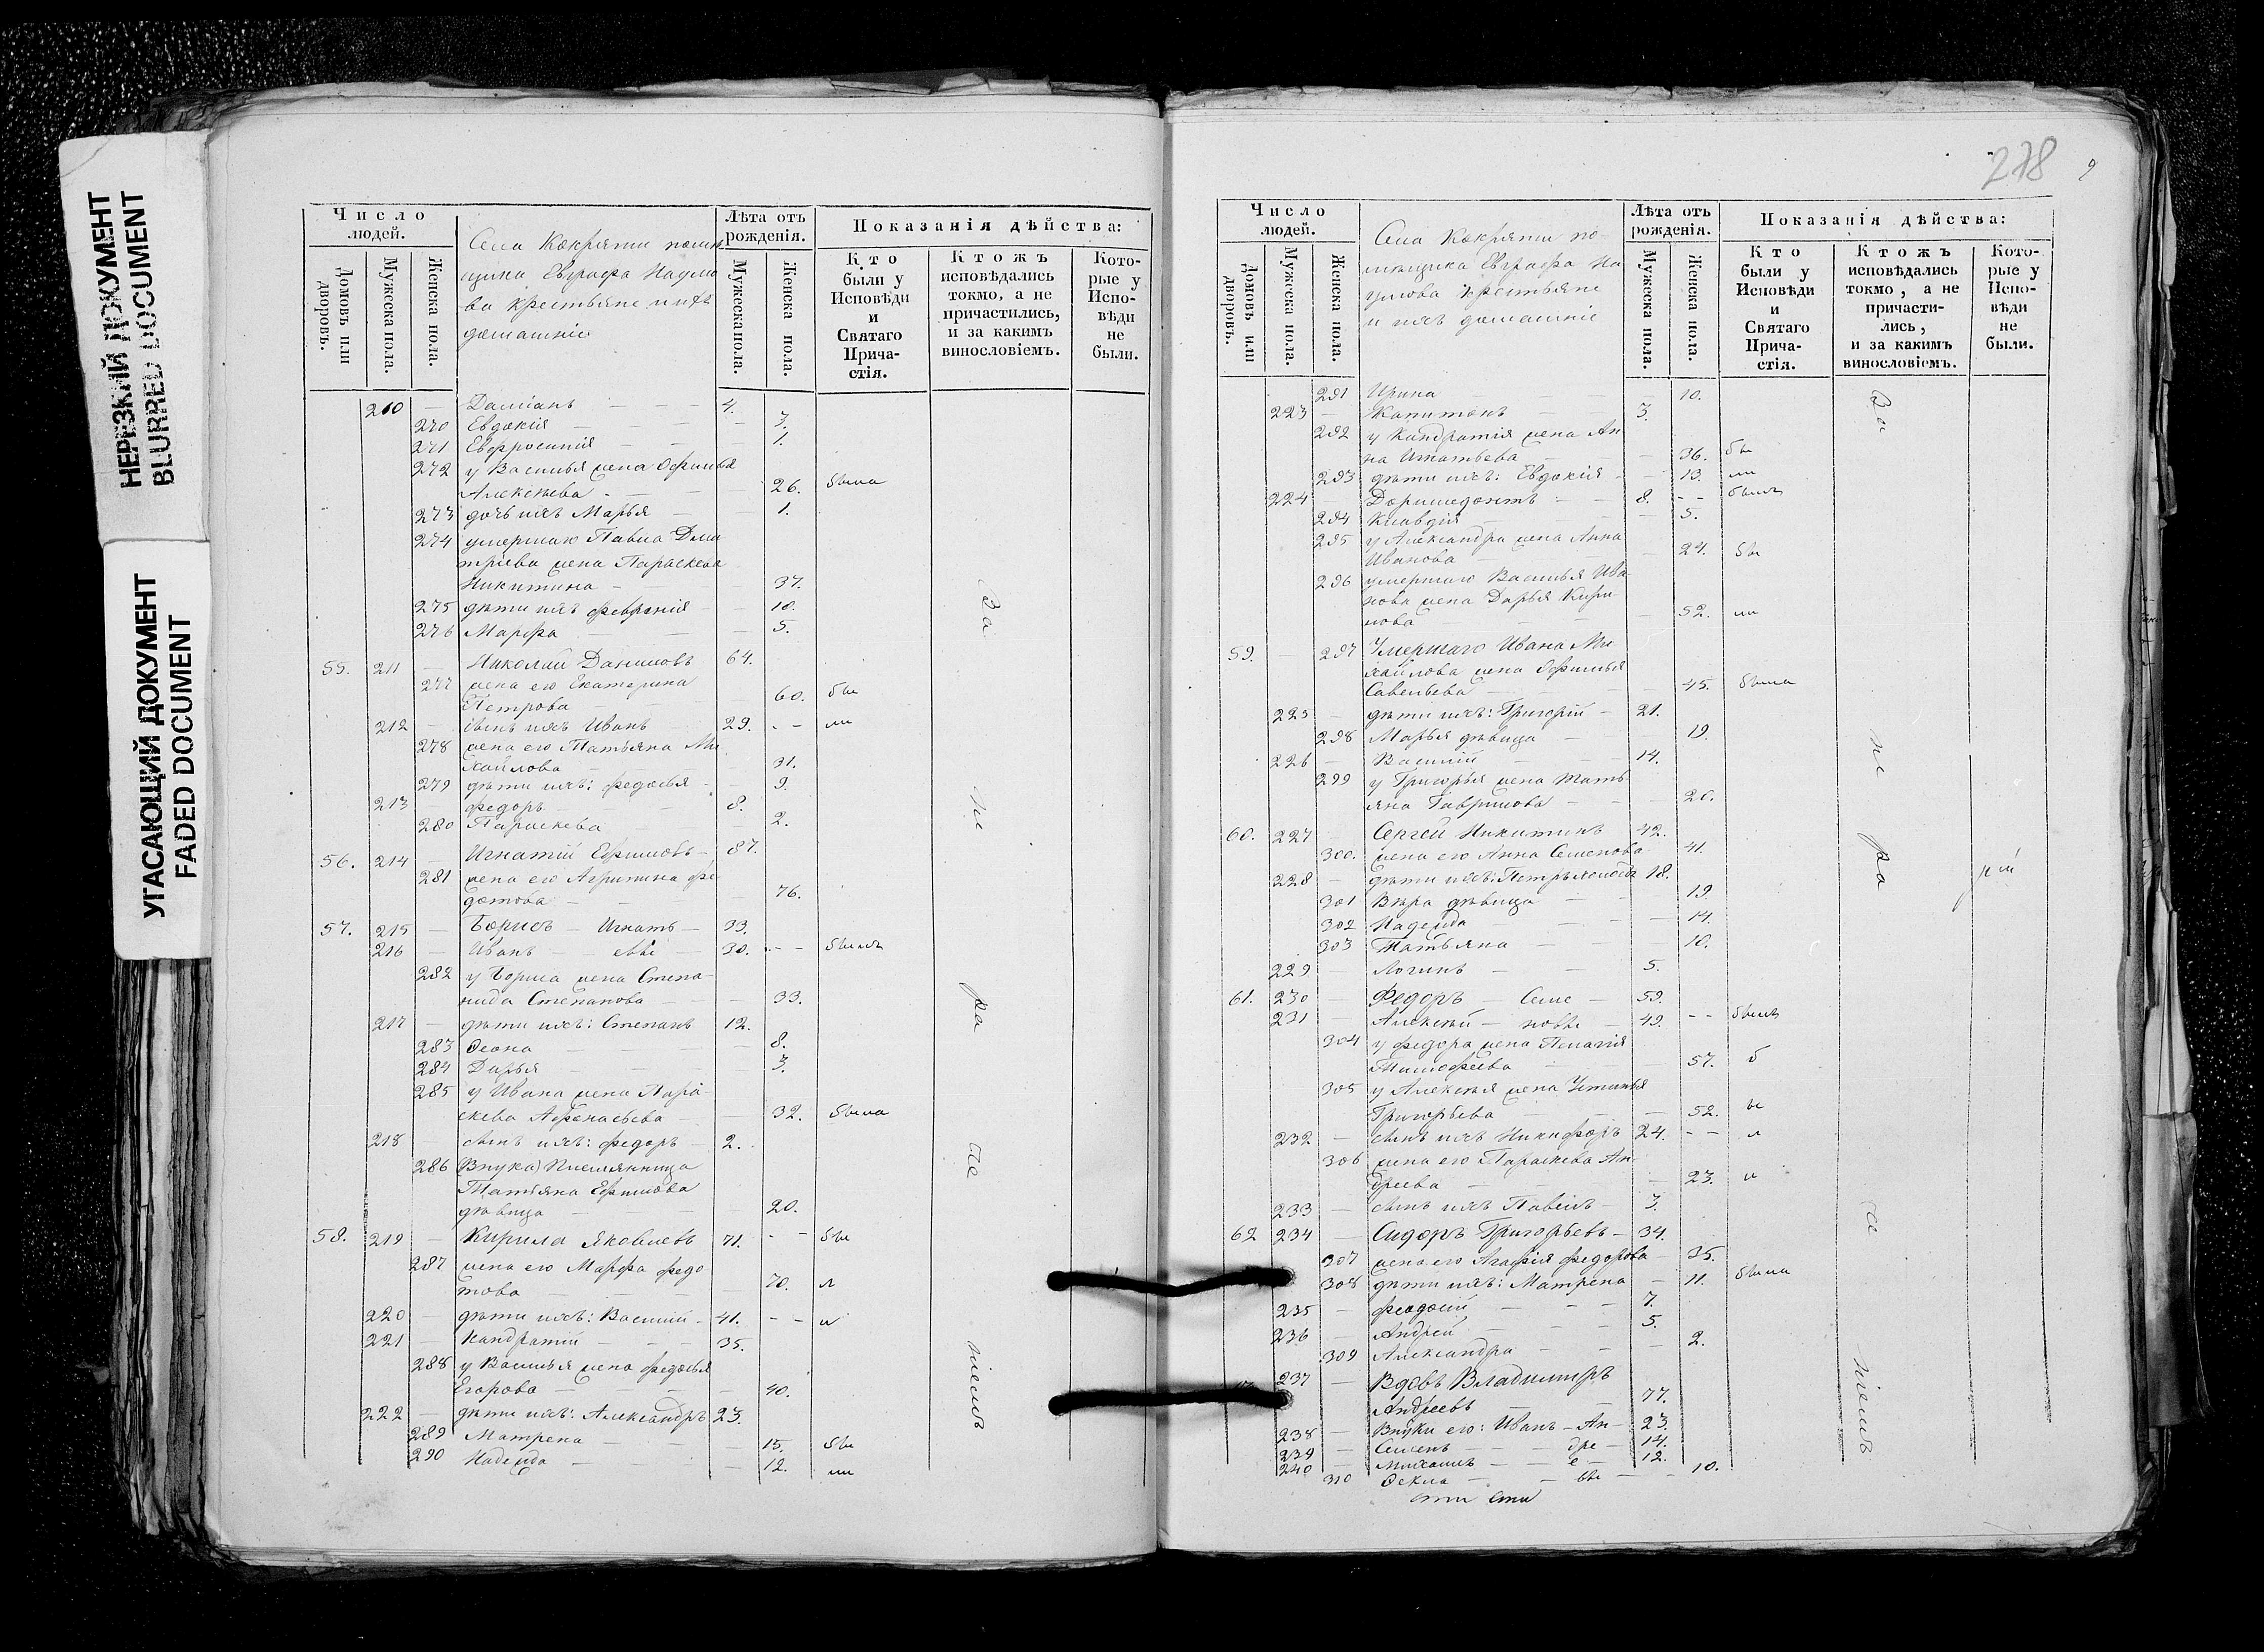 НЕРЕЗКИЙ ДОКУМЕНТ
BLURRED DOCUMENT
УГАСАЮЩИЙ ДОКУМЕНТ
FADED DOCUMENT
Число людей.
Домовъ или дворовъ.
Мужеска пола.
Женска пола.
Села Кокряти помѣ-
щика Евграфа Наумо
ва крестьяне и ихъ
домашніе
Лѣта отъ рожденія.
Мужеска пола.
Женска пола.
Показанія дѣйства:
Кто были у Исповѣди и Святаго Причастія.
Ктожъ исповѣдались токмо, а не причастились, и за какимъ винословіемъ.
Которые у Исповѣди не были.
210 — Даміанъ — 4.
270 Евдокія — 3.
271 Евфросинія — 1.
272 у Василья жена Офимья
Алексѣева — 26. была
273 дочь ихъ Марья — 1.
274 умершаго Павла Дми
тріева жена Параскева
Никитина — 37.
275 дѣти ихъ Февронія — 10.
276 Марфа — 5.
55. 211 — Николай Даниловъ 64.
277 жена его Екатерина
Петрова — 60. бы
212 — сынъ ихъ Иванъ 29. - - ли
278 жена его Татьяна Ми
хайлова — 31.
279 дѣти ихъ: Федосья — 9.
213 — Федоръ — 8.
280 Параскева — 2.
56. 214 — Игнатій Ефимовъ — 87.
281 жена его Агрипина Фе
дотова — 76.
57. 215 — Борисъ — Игнать — 33.
216 — Иванъ — евы — 30. - - былъ
282 у Бориса жена Степа-
нида Степанова — 33.
217 — дѣти ихъ: Степанъ 12.
283 Фекла — 8.
284 Дарья — 3.
285 у Ивана жена Пара-
скева Афонасьева — 32. была
218 — сынъ ихъ: Федоръ — 2.
286 Внука) племянница
Татьяна Ефимова
дѣвица — 20.
58. 219 — Кирила Яковлевъ 71. - - бы
287 жена его Марфа Федо
това — 70. л
220 — дѣти ихъ: Василій — 41. - - и
221 — Кандратій — 35.
288 у Василья жена Федосья
Егорова — 40.
222 — дѣти ихъ: Александръ 23.
289 Матрена — 15. бы
290 Надежда — 12. ли
За
не
ра
че
ніемъ
278
9
Число людей.
Домовъ или дворовъ.
Мужеска пола.
Женска пола.
Села Кокряти по-
мѣщика Евграфа На
умова крестьяне
и ихъ домашніе
Лѣта отъ рожденія.
Мужеска пола.
Женска пола.
Показанія дѣйства:
Кто были у Исповѣди и Святаго Причастія.
Ктожъ исповѣдались токмо, а не причастились, и за какимъ винословіемъ.
Которые у Исповѣди не были.
291 Ирина — 10.
223 — Капитонъ — 3.
292 у Кандратія жена Ан
на Игнатьева — 36. бы
293 дѣти ихъ: Евдокія — 13. ли
224 — Доримедонтъ — 8. - - былъ
294 Клавдія — 5.
295 у Александра жена Анна
Иванова — 24. бы
296 умершаго Василья Ива
нова жена Дарья Кири-
лова — 52. ли
59. — 297 Умершаго Ивана Ми
хайлова жена Офимья
Савельева — 45. была
225 — дѣти ихъ: Григорій — 21.
298 Марья дѣвица — 19.
226 — Василій — 14.
299 у Григорья жена Тать
яна Гаврилова — 20.
60. 227 — Сергей Никитинъ 42.
300. жена его Анна Семенова 41.
228 — дѣти ихъ: Петръ холостъ 18.
301 Вѣра дѣвица — 19.
302 Надежда — 14.
303 Татьяна — 10.
229 Логинъ — 5.
61. 230 — Федоръ — Семе — 59.
231 — Алексѣй — новы — 49. - - былъ
304 у Федора жена Пелагія
Тимофеева — 57. б
305 у Алексѣя жена Устинья
Григорьева — 52. ы
232 — сынъ ихъ Никифоръ 24. - - л
306 жена его Параскева Ан-
дреева — 23. и
233 — сынъ ихъ Павелъ — 3.
62 234 — Сидоръ Григорьевъ — 34.
307 жена его Агафія Федорова — 35.
308 дѣти ихъ: Матрена — 11. была
235 — Феодосій — 7.
236 — Андрей — 5.
309 Александра — 2.
237 — Вдовъ Владимиръ
Андреевъ — 77.
238 — Внуки его: Иванъ — Ан — 23.
239 — Семенъ — дре — 14.
240 — Михаилъ — е — 12.
310 Фекла — вы — 10.
За
не
ра
че
ніемъ